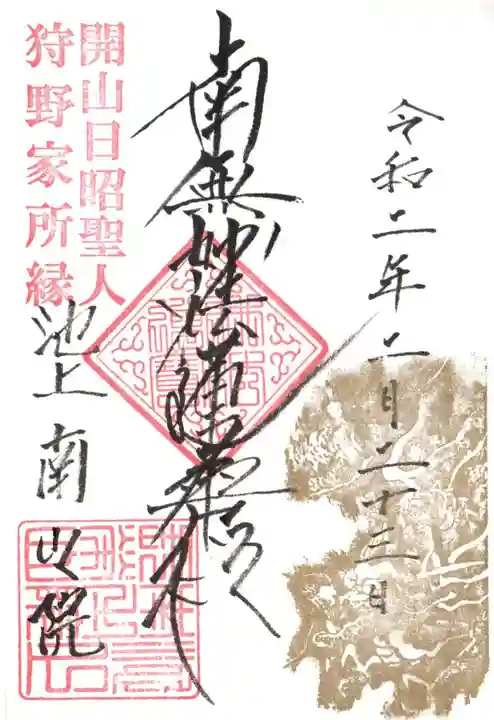 令和二年二月二十三日
南無妙法蓮華経
開山日昭聖人
狩野家所縁
池上南之院